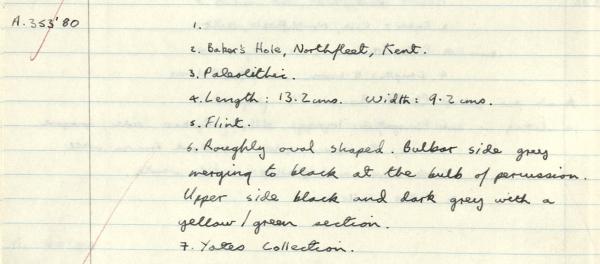 A.353'80
1.
2. Baker's Hole, Northfleet, Kent.
3. Paleolithic.
4. Length: 13.2cms. Width: 9.2cms.
5. Flint.
6. Roughly oval shaped. Bulbar side grey
merging to black at the bulb of percussion.
Upper side black and dark grey with a
yellow/green section.
7. Yates Collection.